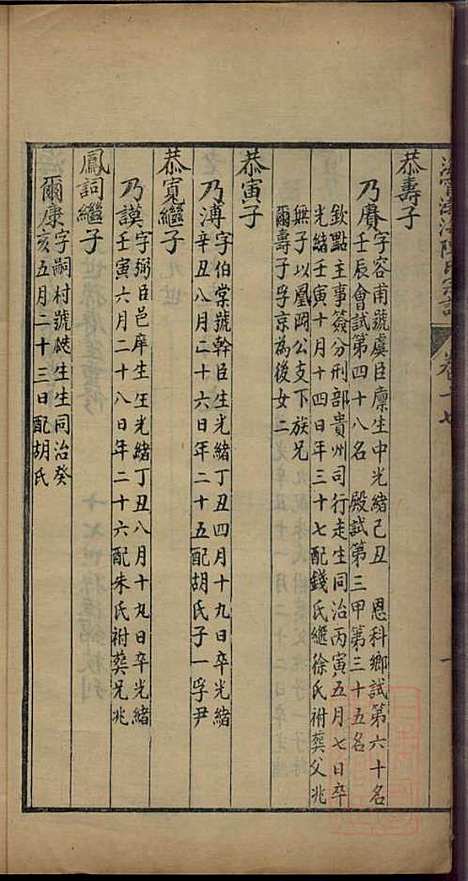 恭壽子
乃賡字容甫號虞臣廩生中光緒己丑　恩科鄉試第六十名
壬辰會試第四十八名　殿試第三甲第三十五名
欽點主事簽分刑部貴州司行走生同治丙寅五月七日卒
光緒壬寅十月十四日年三十七配錢氏繼徐氏祔葬父兆
無子以鳳岡公支下族兄
爾壽子孚京為後女二
恭寅子
乃溥字伯棠號幹臣生光緒丁丑四月十九日卒光緒
辛丑八月二十六日年二十五配胡氏子一孚尹
恭寬繼子
乃謨字弼臣邑庠生生光緒丁丑八月十九日卒光緒
壬寅六月二十八日年二十六配朱氏祔葬兄兆
鳳詞繼子
爾康字嗣村號生生同治癸
亥五月二十三日配胡氏